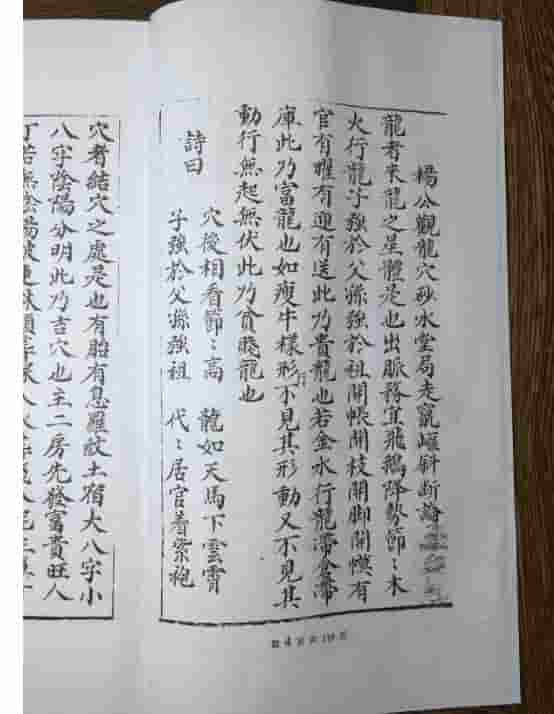 楊公觀龍穴砂水堂局走竄巉斜斷論
龍者来龍之星體是也出脈務宜飛鵝降勢節〻木
火行龍子強於父孫強於祖開帳開枝開脚開幙有
官有曜有迎有送此乃貴龍也若金水行龍帶倉帶
庫此乃富龍也如瘦牛樣形不見其形動又不見其
動行無起無伏此乃貧賤龍也
詩曰
穴後相看節〻高 龍如天馬下雲霄
子強於父孫強祖 代〻居官着紫袍
穴者結穴之處是也有胎有息羅紋土宿大八字小
八字陰陽分明此乃吉穴也主二房先發富貴旺人
丁若無陰陽